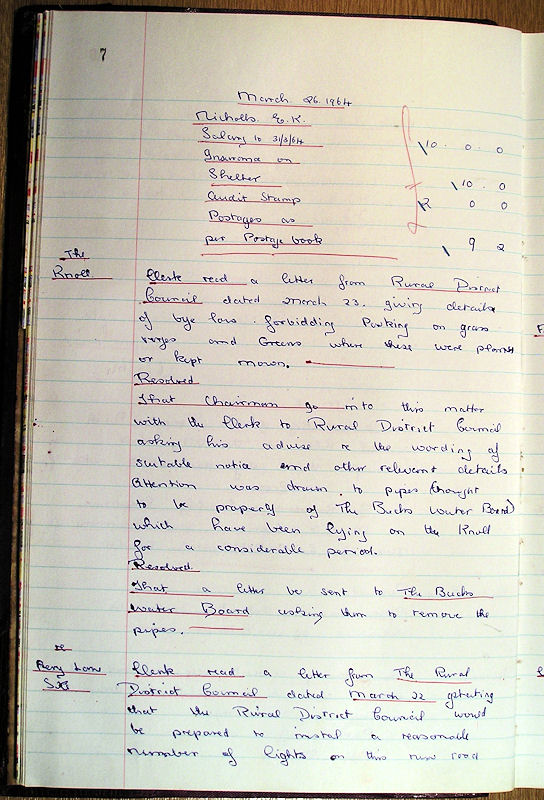 7
March 26. 1964
Nicholls E.K.
Salary to 31/3/64 10. 0. 0
Insurance on
Shelter 10. 0
Audit Stamp 2 0 0
Postages as
per Postage book 9 2
The
Knoll
Clerk read a letter from Rural District
Council dated March 23. giving details
of bye laws forbidding Parking on grass
verges and Greens where these were planted
or kept mown.
Resolved
That Chairman go into this matter
with the Clerk to Rural District Council
asking his advise re the wording of
suitable notice and other relevent details
Attention was drawn to pipes (thought
to be property of The Bucks Water Board)
which have been lying on the Knoll
for a considerable period.
Resolved
That a letter be sent to The Bucks
Water Board asking them to remove the
pipes.
re
Lane
Clerk read a letter from The Rural
District Council dated March 22 stating
that the Rural District Council would
be prepared to instal a reasonable
number of lights on this new road